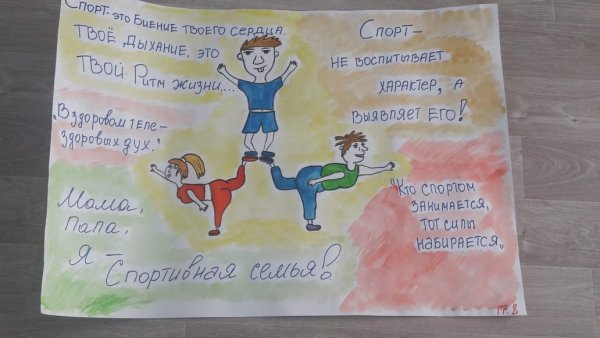 Спорт-это Биение твоего сердца.
Твоё Дыхание, это
Твой Ритм жизни...
Спорт-
не воспитывает
характер, а
выявляет его!
"В здоровом теле-
здоровых дух."
Мама,
Папа,
Я -
Спортивная семья!
"Кто спортом
занимается,
тот силы
набирается"
гр. 8